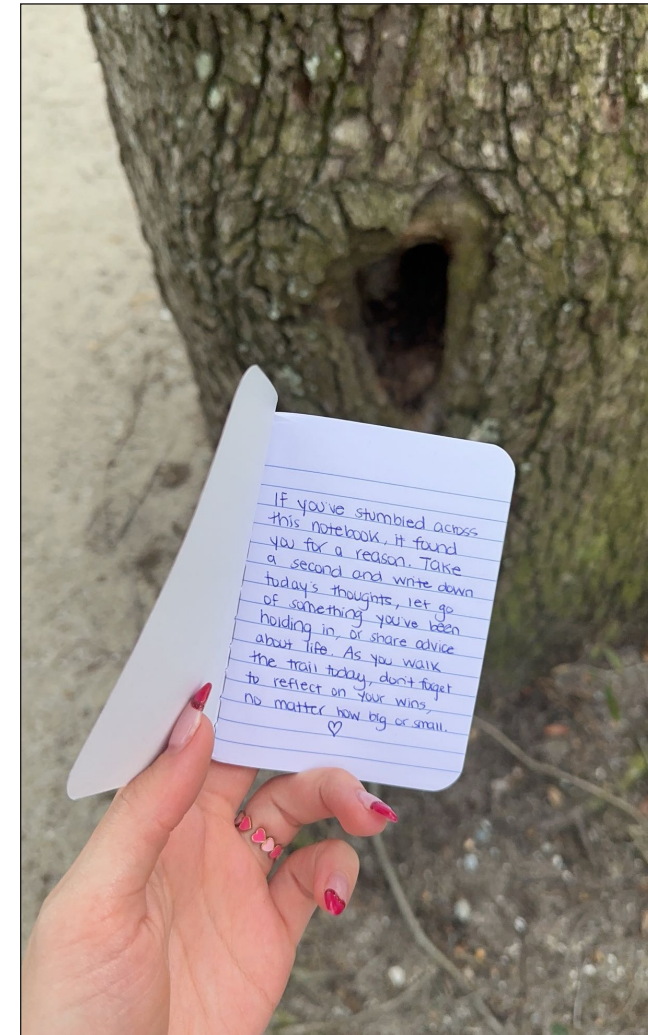 If you've stumbled across
this notebook, it found
you for a reason. Take
a second and write down
today's thoughts, let go
of something you've been
holding in, or share advice
about life. As you walk
the trail today, don't foget
to reflect on your wins,
no matter how big or small.
♡